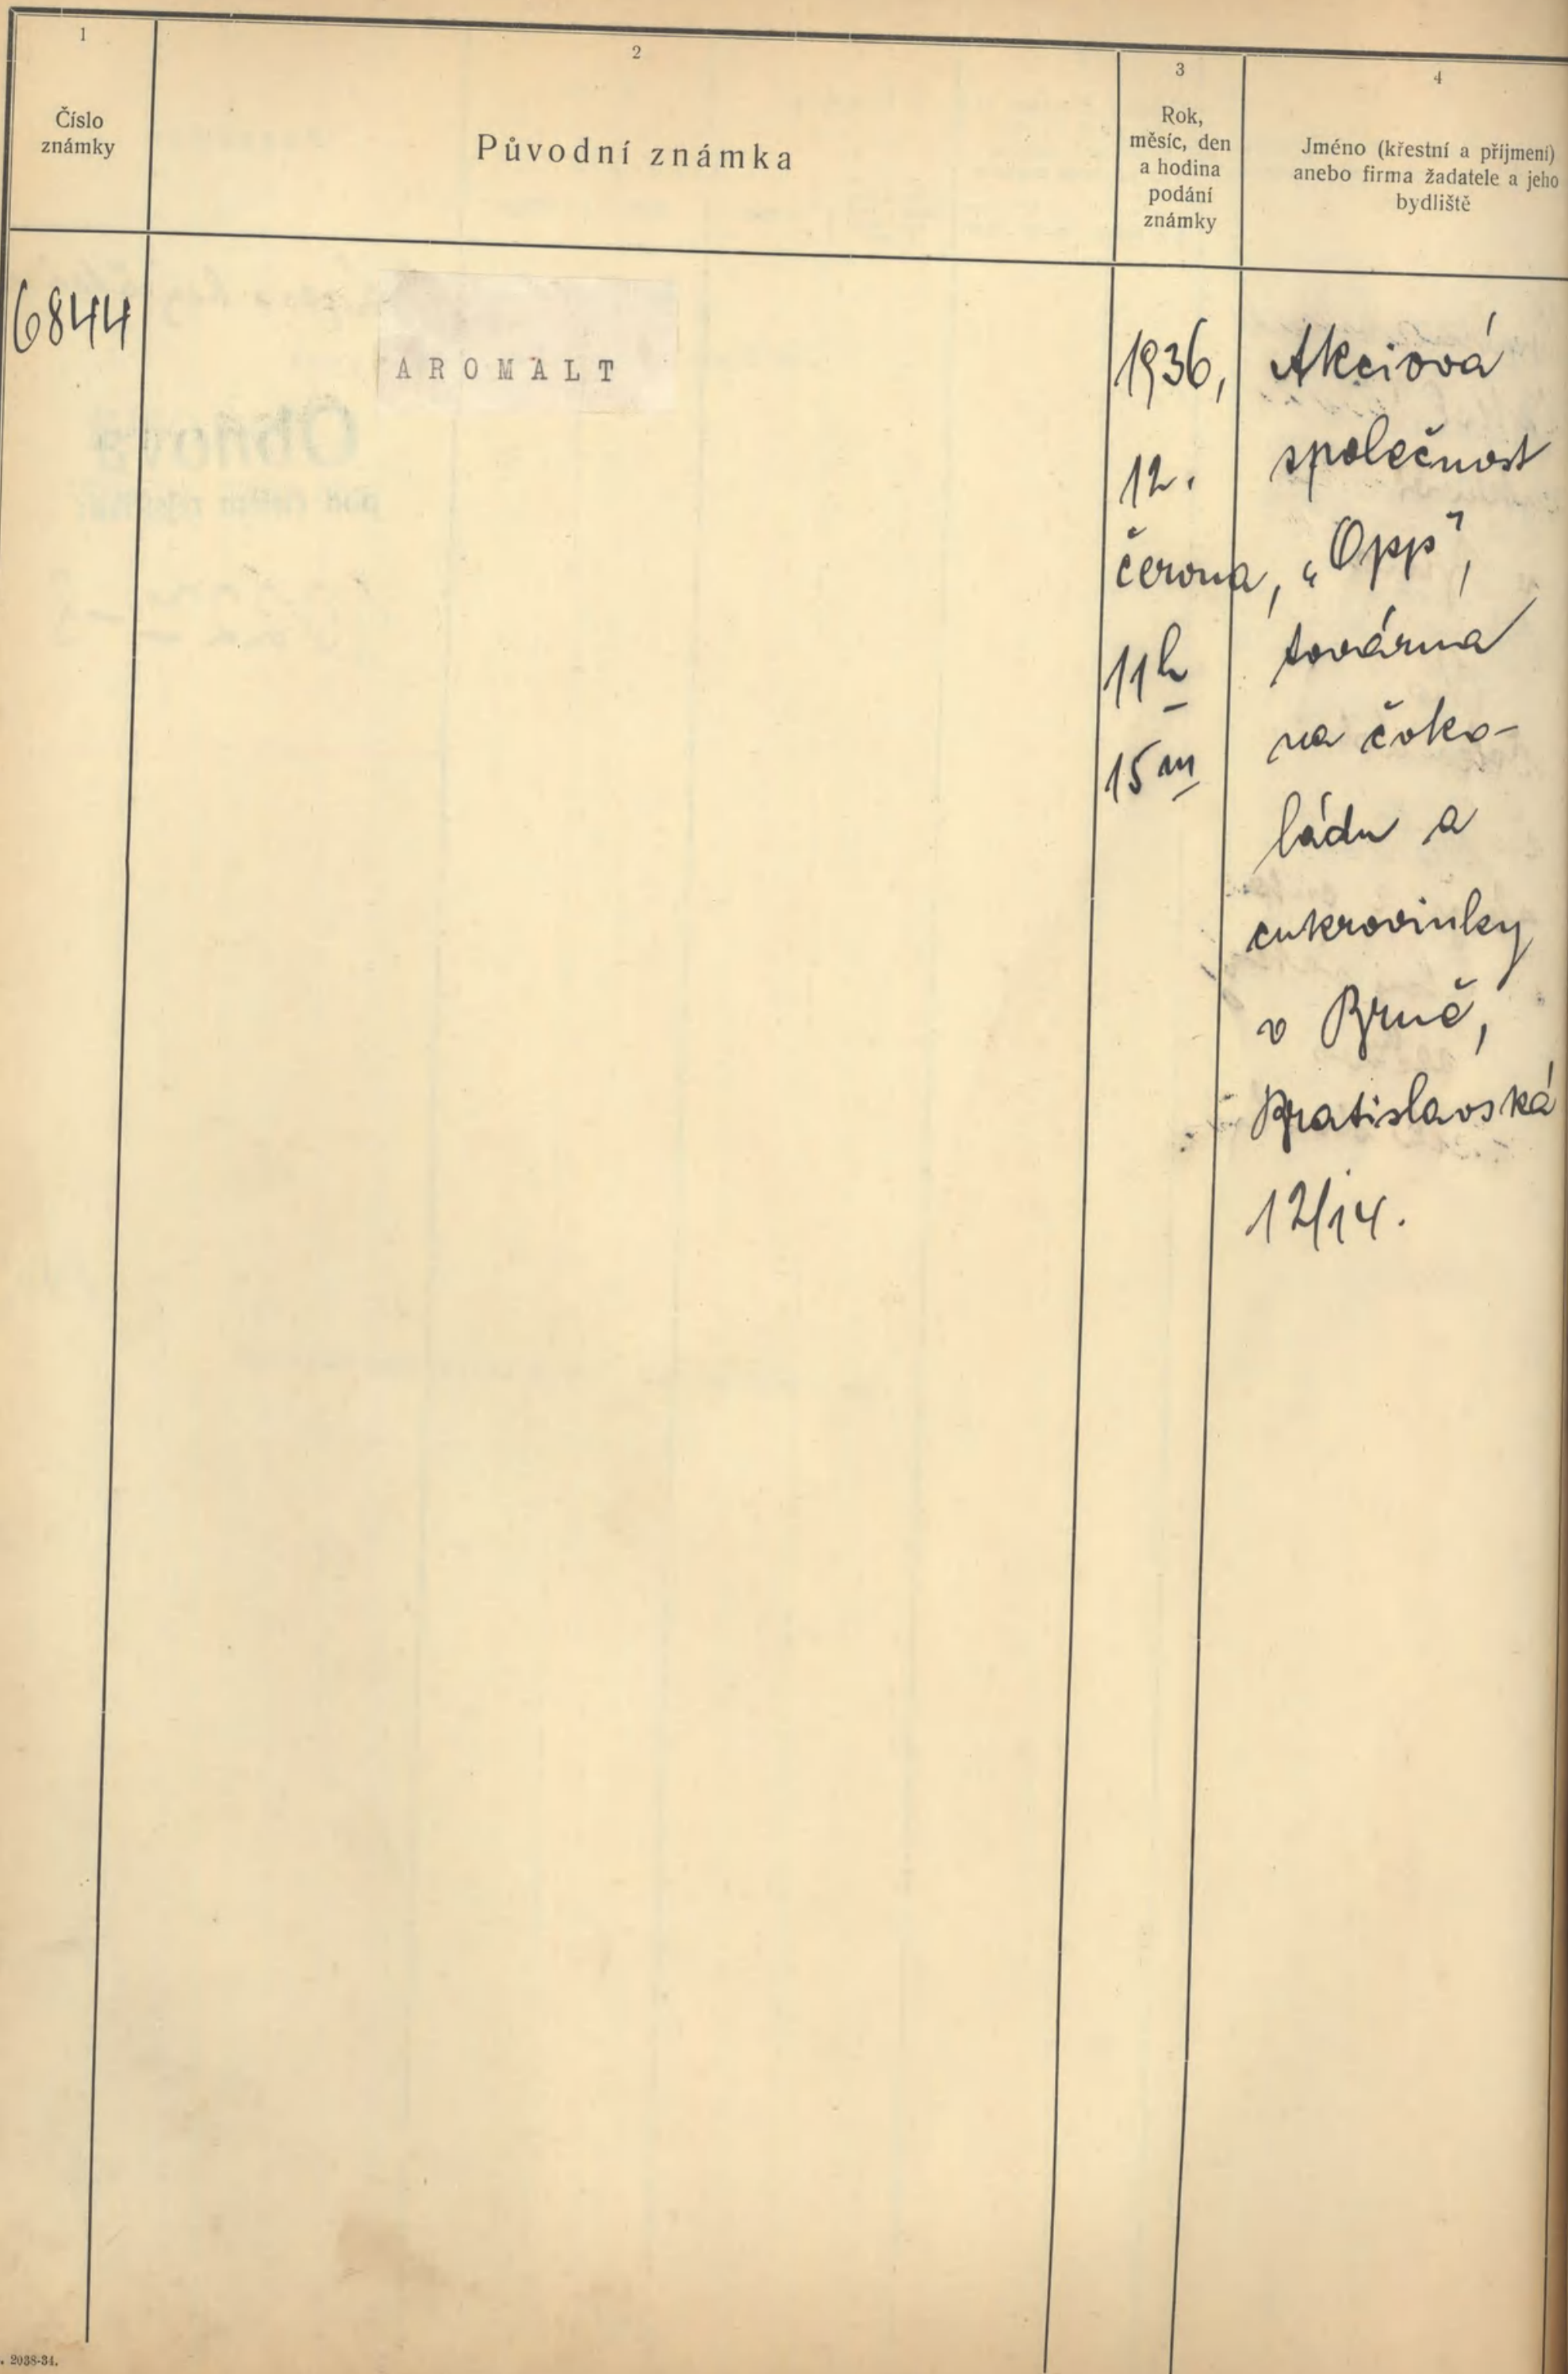 1
Číslo
známky
2
Původní známka
3
Rok,
měsíc, den
a hodina
podání
známky
4
Jméno (křestní a příjmení)
anebo firma žadatele a jeho
bydliště
6844
AROMALT
1936,
12.
června,
11h
15m
Akciová
společnost
„Opp",
továrna
na čoko-
ládu a
cukrovinky
v Brně,
Bratislavská
12/14.
. 2038-34.